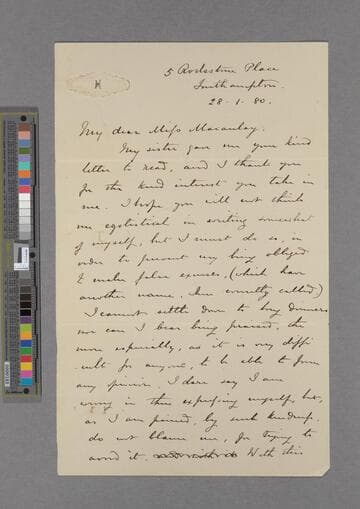 5 Rockstone Place
Southampton.
28. 1. 80.
My dear Miss Macaulay.
My sister gave me your kind
letter to read, and I thank you
for the kind interest you take in
me. I hope you will not think
me egotistical in writing somewhat
of myself, but I must do so, in
order to prevent my being obliged
to make false excuses, (which have
another name, when correctly called)
I cannot settle down to long dinners
nor can I bear being praised, the
more especially, as it is very diffi
cult for anyone, to be able to form
any opinion. I dare say I am
wrong in thus expressing myself, but,
as I am pained, by such kindness,
do not blame me, for trying to
avoid it. With this